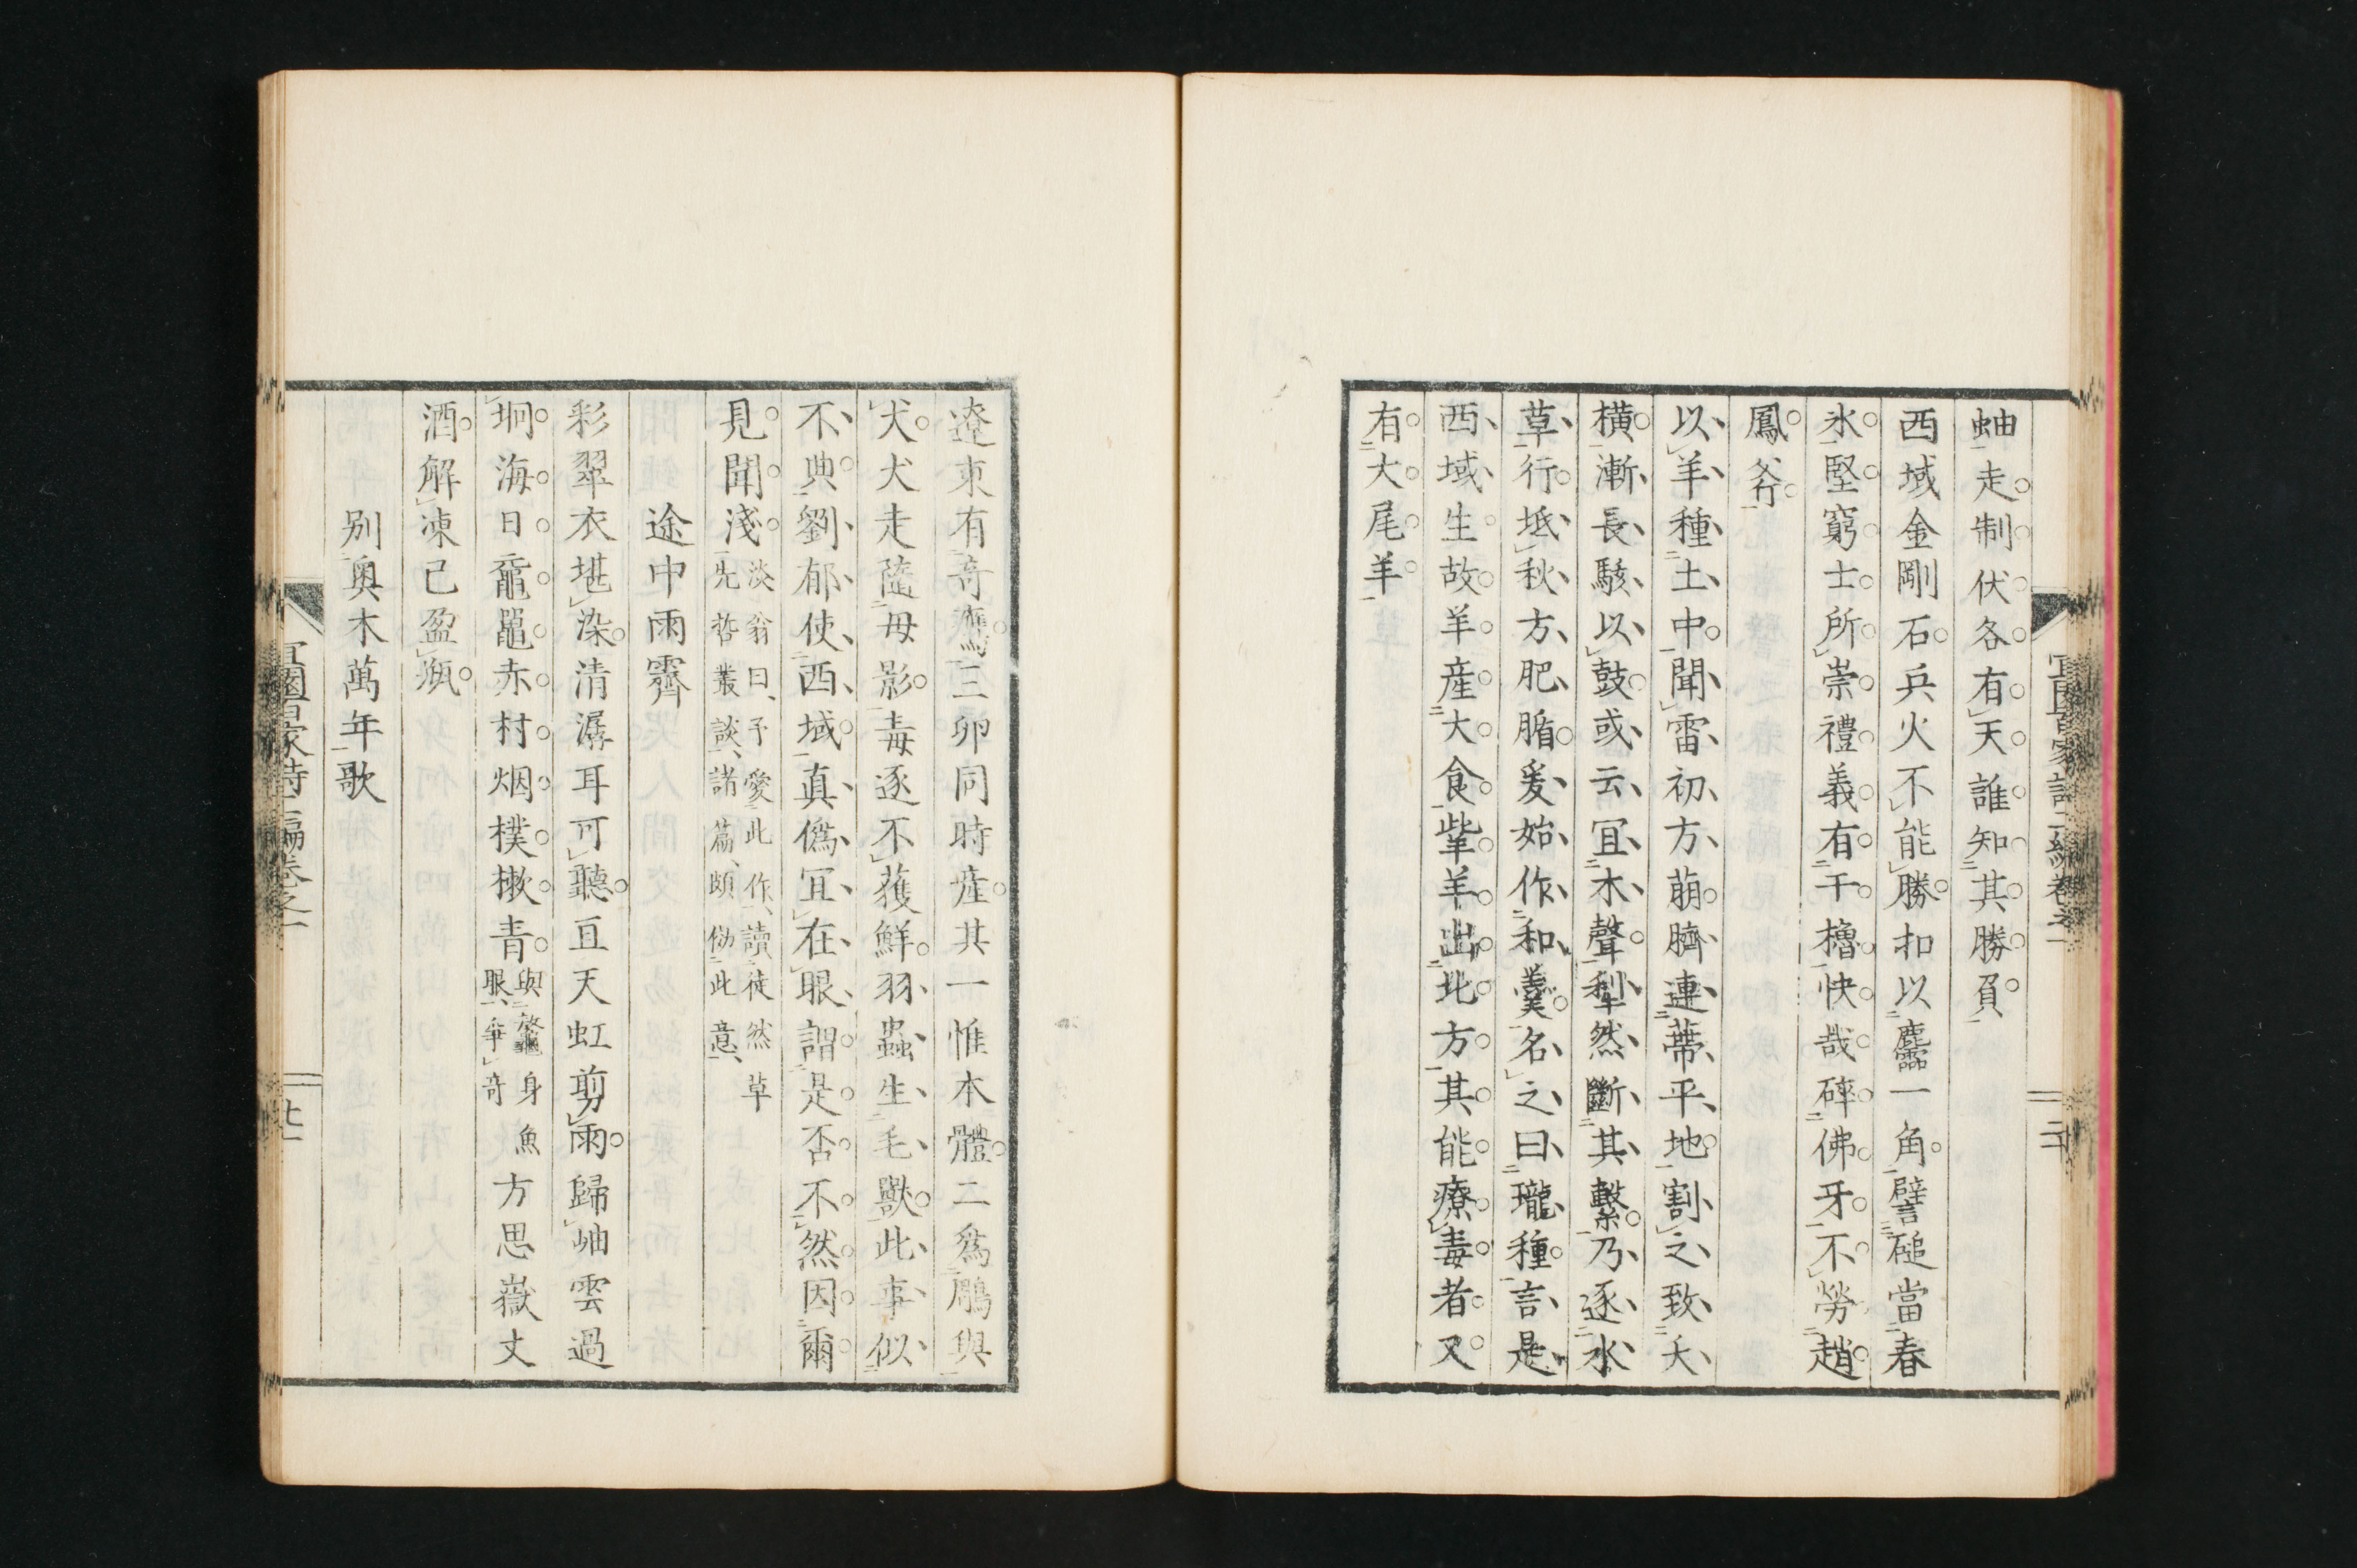 蚰走制伏各有天誰知其勝負
西域金剛石兵火不能勝扣以麢一角譬磓當春
氷堅窮士所崇禮義有干櫓快哉碎佛牙不勞趙
鳳斧
以羊種土中聞雷初方萠臍連蔕平地割之致夭
橫漸長駭以鼓或云冝木聲犁然斷其繫乃逐水
草行坻秋方肥腯爰始作和羹名之曰瓏種言是
西域生故羊産大食㧘羊出北方其能療毒者又
有大尾羊
遼東有竒鷹三卵同時產其一惟本體二爲鵰與
犬犬走隨母影毒逐不獲鮮羽蟲生毛獸此事似
不典劉郁使西域真僞冝在眼謂是否不然因爾
見聞淺淡翁曰予愛此作讀徒然草
先哲叢談諸篇頗倣此意
途中雨霽
彩翠衣堪染清潺耳可聽亘天虹剪雨歸岫雲過
坰海日黿鼉赤村烟樸樕青與鰲身魚
眼爭竒方思嶽丈
酒解凍已盈瓶
別奥木萬年歌